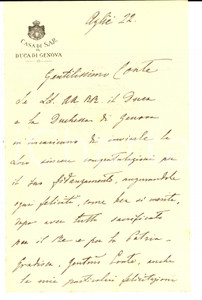 Agliè 22
CASA DI S.A.R.
IL
DUCA DI GENOVA
Gentilissimo Conte
Le LL. AA. RR. il Duca
e la Duchessa di Genova
m'incaricano di inviarle le
loro sincere congratulazioni per
il suo fidanzamento, augurandole
ogni felicità, come ben si merita,
dopo aver tutto sacrificato
per il Re e per la Patria.
Gradisca, Conte, anche
le mie particolari felicitazioni